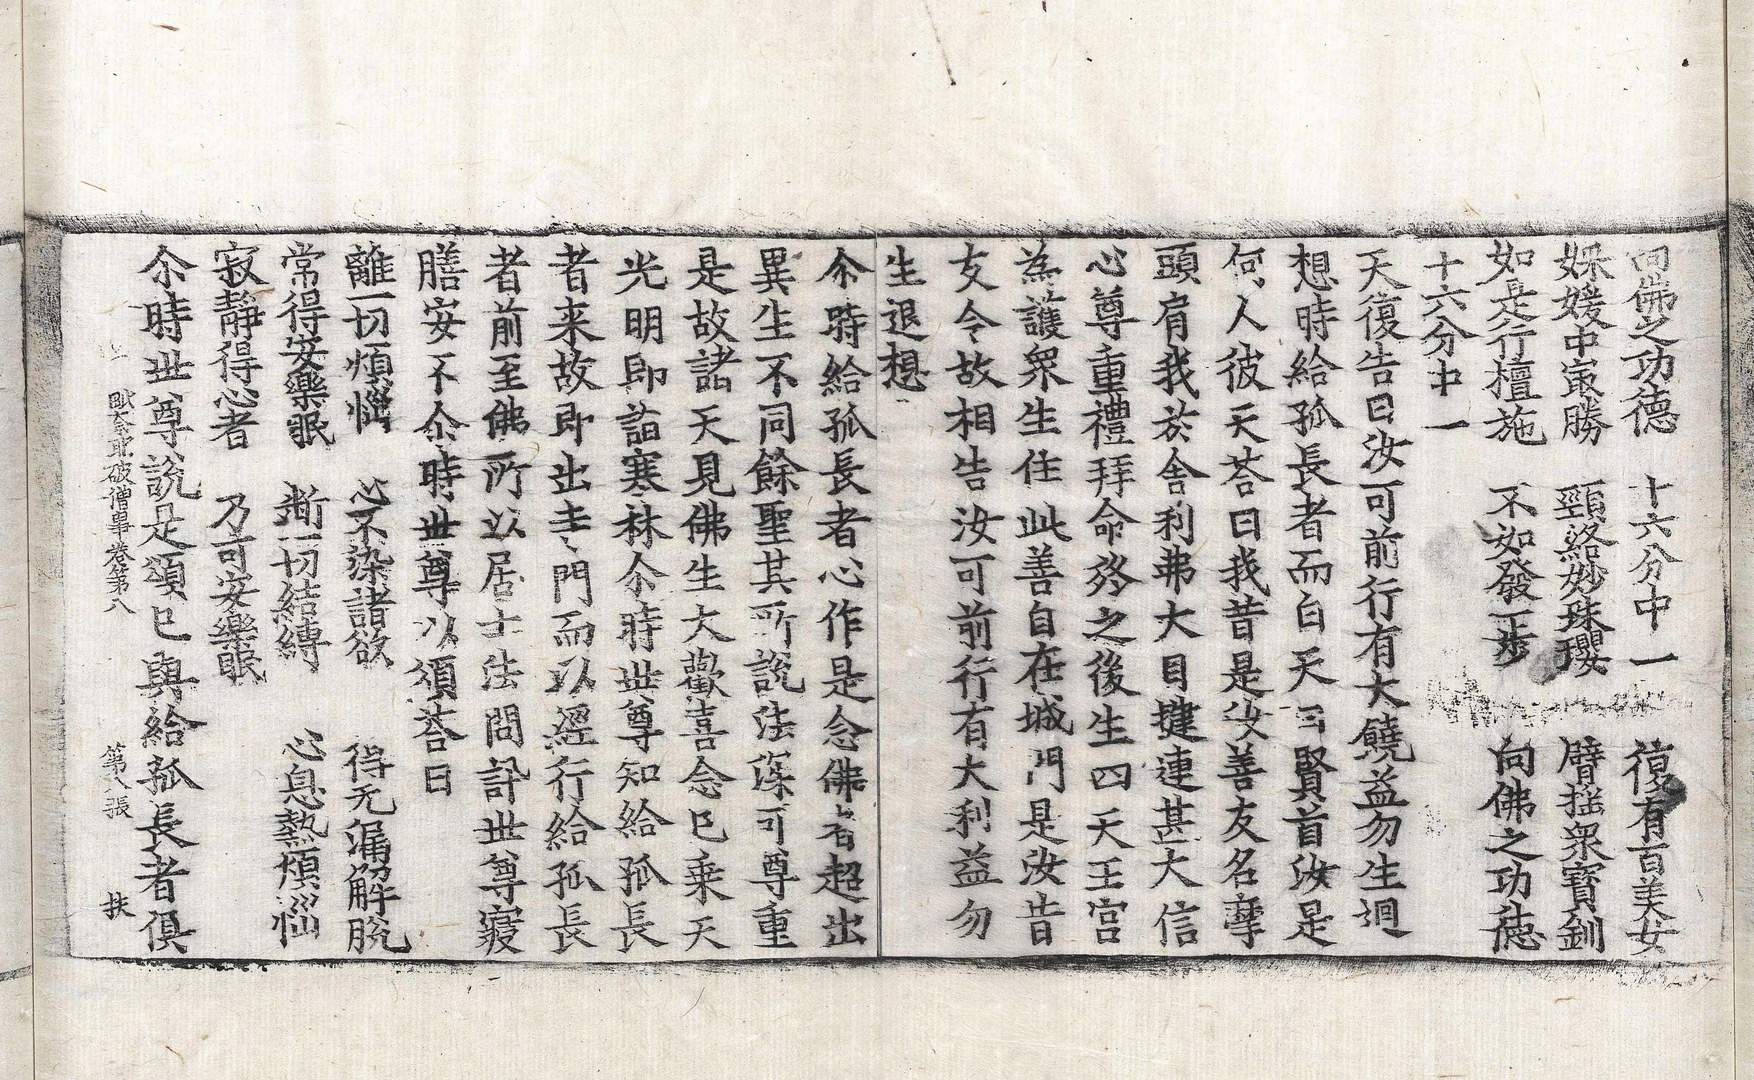 向佛之功德　十六分中一　復有百美女
婇媛中㝡勝　頸絡妙珠瓔　臂揺衆寶釧
如是行檀施　不如發一步　向佛之功德
十六分中一
天復告曰汝可前行有大饒益勿生迴
想時給孤長者而白天曰賢首汝是
何人彼天荅曰我昔是汝善友名㝈
頭肩我於舍利弗大目揵連甚大信
心尊重禮拜命終之後生四天王宫
為護衆生住此善自在城門是汝昔
友令故相告汝可前行有大利益勿
生退想
尒時給孤長者心作是念佛者超出
異生不同餘聖其所說法深可尊重
是故諸天見佛生大歡喜念已乗天
光明即詣寒林尒時世尊知給孤長
者来故即出寺門而以經行給孤長
者前至佛所以居士法問訊世尊寢
膳安不尒時世尊以頌荅曰
離一切煩惱　心不染諸欲　得无漏解脫
常得安樂眠　斷一切結縛　心息熱煩惱
寂靜得心者　乃可安樂眠
毗奈耶破僧事卷第八　第八張　扶
尒時世尊說是頌已與給孤長者俱